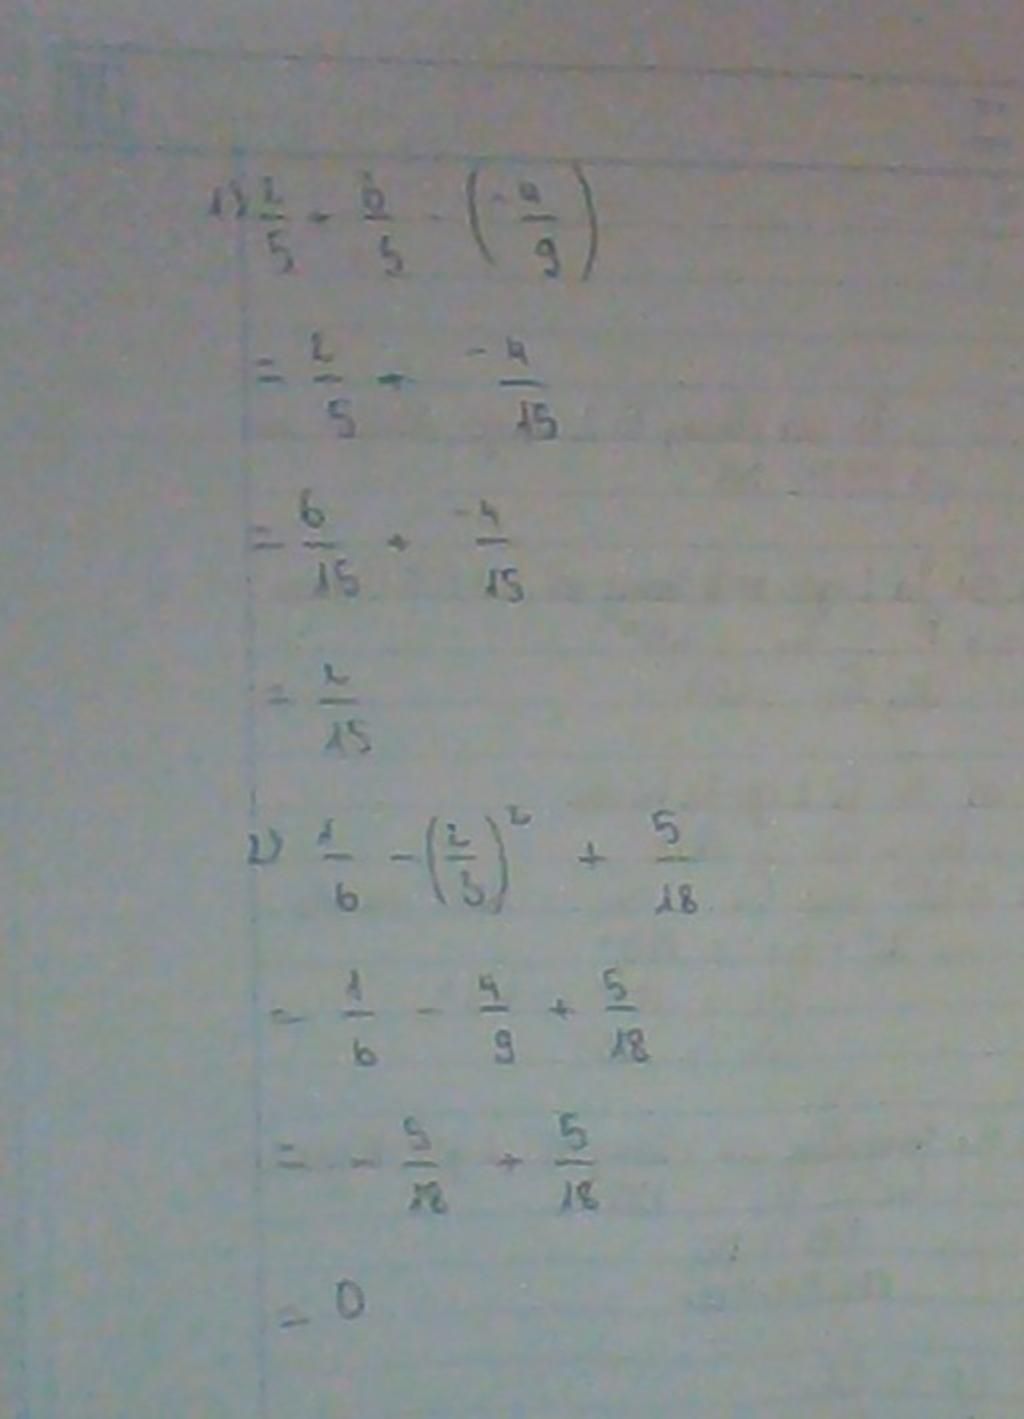 1) 2/5 + 6/5 · (-4/9)
= 2/5 + -4/15
= 6/15 + -4/15
= 2/15
2) 1/6 - (2/3)² + 5/18
= 1/6 - 4/9 + 5/18
= - 5/18 + 5/18
= 0